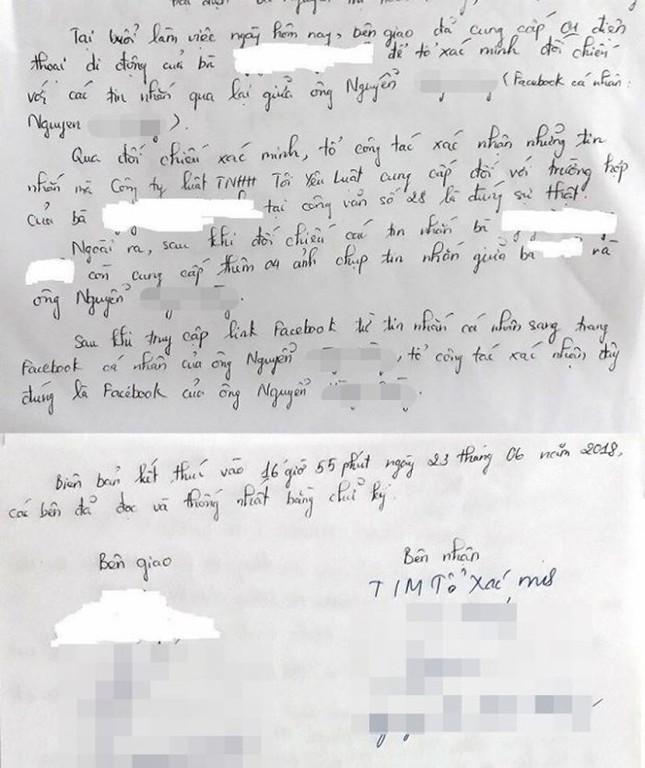 Tại buổi làm việc ngày hôm nay, bên giao đã cung cấp 01 điện
thoại di động của bà để tổ xác minh đối chiếu
với các tin nhắn qua lại giữa ông Nguyễn (Facebook cá nhân:
Nguyen ).
Qua đối chiếu xác minh, tổ công tác xác nhận những tin
nhắn mà Công ty luật TNHH Tôi Yêu Luật cung cấp đối với trường hợp
của bà tại công văn số 28 là đúng sự thật.
Ngoài ra, sau khi đối chiếu các tin nhắn bà
còn cung cấp thêm 04 ảnh chụp tin nhắn giữa bà và
ông Nguyễn .
Sau khi truy cập link Facebook từ tin nhắn cá nhân sang trang
Facebook cá nhân của ông Nguyễn , tổ công tác xác nhận đây
đúng là Facebook của ông Nguyễn .
Biên bản kết thúc vào 16 giờ 55 phút ngày 23 tháng 06 năm 2018,
các bên đã đọc và thống nhất bằng chữ ký.
Bên giao
Bên nhận
TIM Tổ Xác